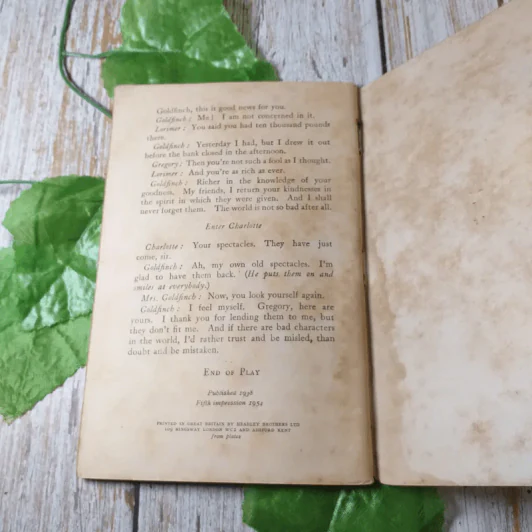 Goldfinch, this is good news for you.
Goldfinch: Me! I am not concerned in it.
Lorimer: You said you had ten thousand pounds
them.
Goldfinch: Yesterday I had, but I drew it out
before the bank closed in the afternoon.
Gregory: Then you're not such a fool as I thought.
Lorimer: And you're as rich as ever.
Goldfinch: Richer in the knowledge of your
goodness. My friends, I return your kindnesses in
the spirit in which they were given. And I shall
never forget them. The world is not so bad after all.
Enter Charlotte
Charlotte: Your spectacles. They have just
come, sir.
Goldfinch: Ah, my own old spectacles. I'm
glad to have them back. (He puts them on and
smiles at everybody.)
Mrs. Goldfinch: Now, you look yourself again.
Goldfinch: I feel myself. Gregory, here are
yours. I thank you for lending them to me, but
they don't fit me. And if there are bad characters
in the world, I'd rather trust and be misled, than
doubt and be mistaken.
END OF PLAY
Published 1938
Fifth impression 1952
PRINTED IN GREAT BRITAIN BY HEADLEY BROTHERS LTD
109 KINGSWAY LONDON WC2 AND ASHFORD KENT
from plates